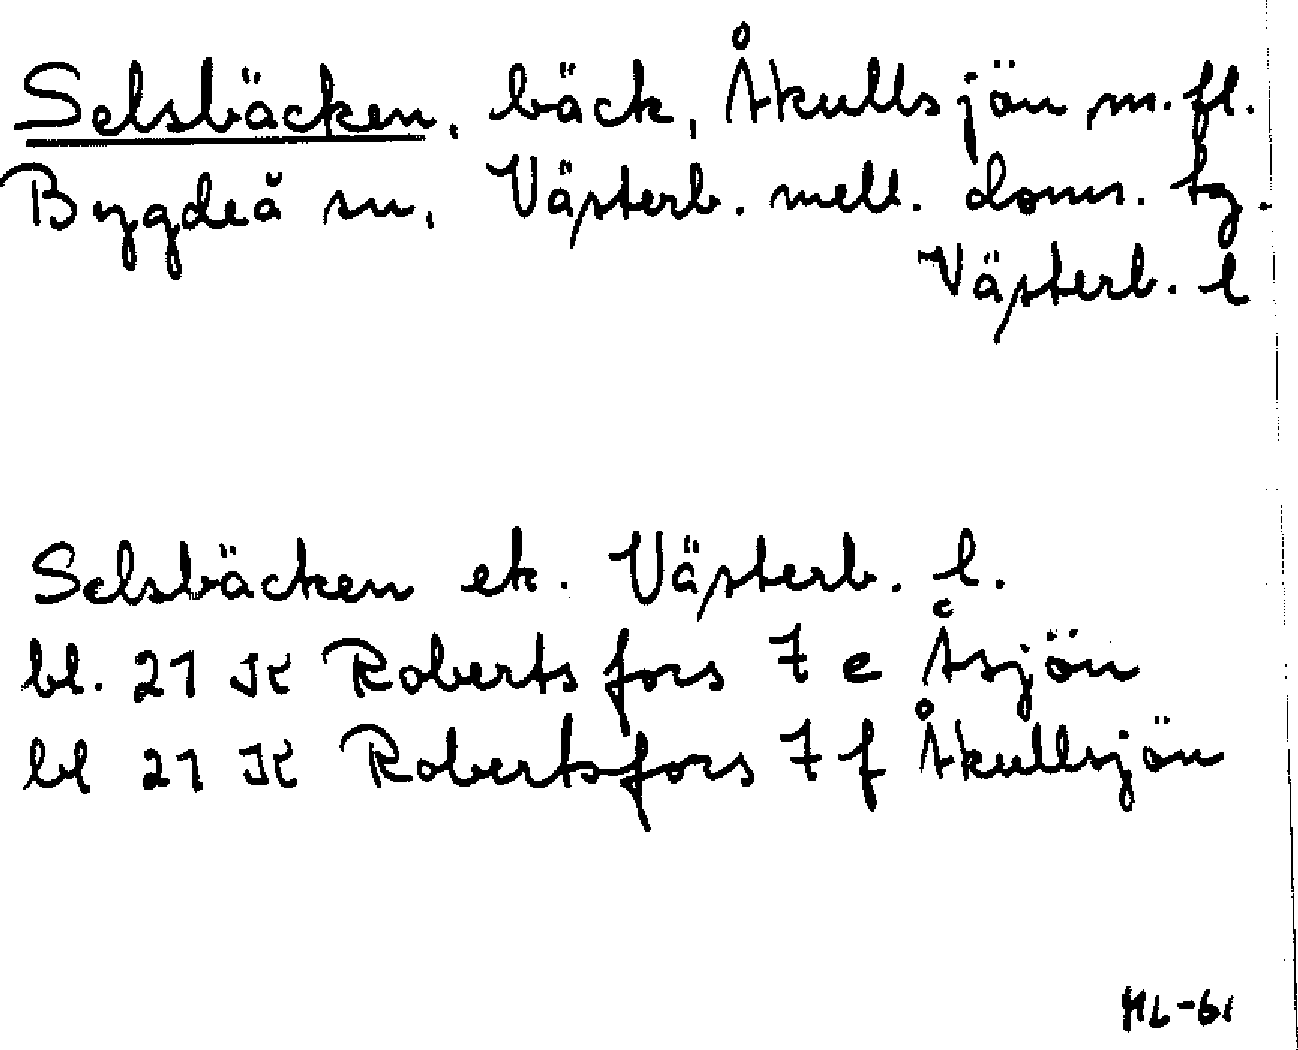 Selsbäcken, bäck, Åkullsjön m.fl.
Bygdeå sn, Västerb. mell. doms. tg.
Västerb. l
Selsbäcken ek. Västerb. l.
bl. 21 K Robertsfors 7 e Åsjön
bl 21 K Robertsfors 7 f Åkullsjön
HL-61